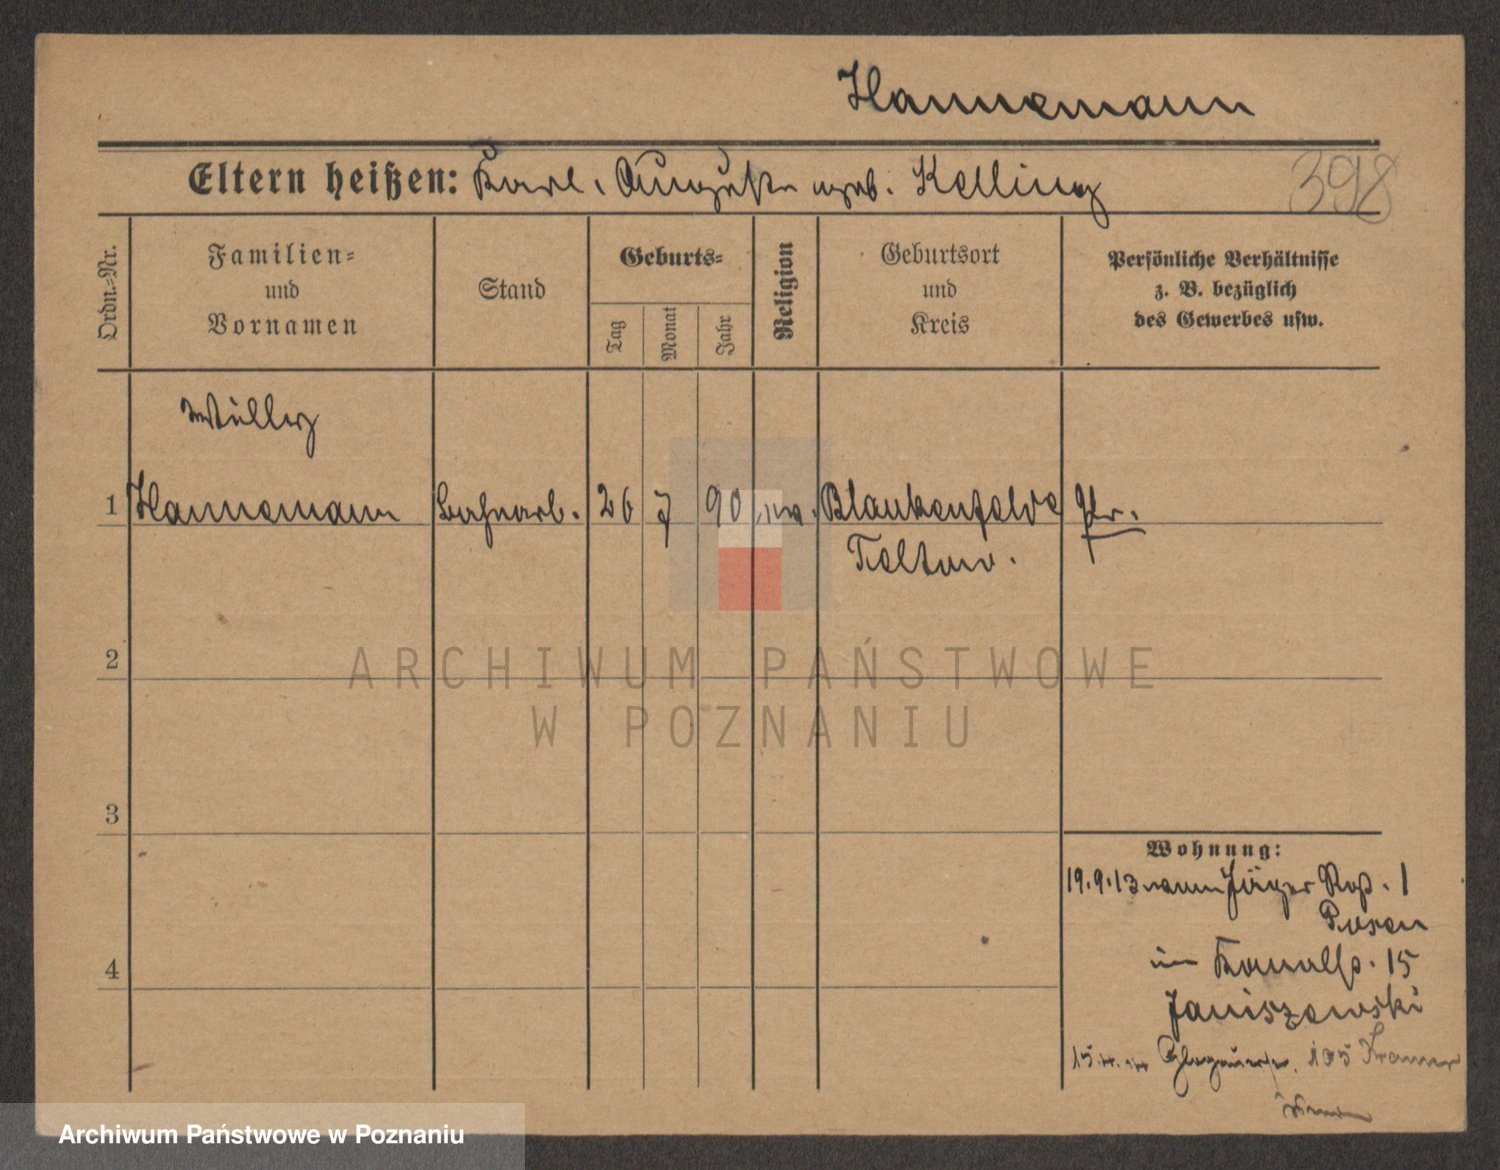 Hannemann
Eltern heißen: Karl, Auguste geb. Kelling
398
Ordn.-Nr.
Familien-
und
Vornamen
Stand
Geburts-
Tag
Monat
Jahr
Religion
Geburtsort
und
Kreis
Persönliche Verhältnisse
z. B. bezüglich
des Gewerbes usw.
Willy
1 Hannemann Bahnarb. 26 7 90 Blankenfelde Pr.
Teltow.
2
ARCHIWUM PAŃSTWOWE
W POZNANIU
3
Wohnung:
19.9.13 vom Jäger Rgt. 1
Posen
in Kanalstr. 15
Janiszewski
4
105 Kramer
Archiwum Państwowe w Poznaniu